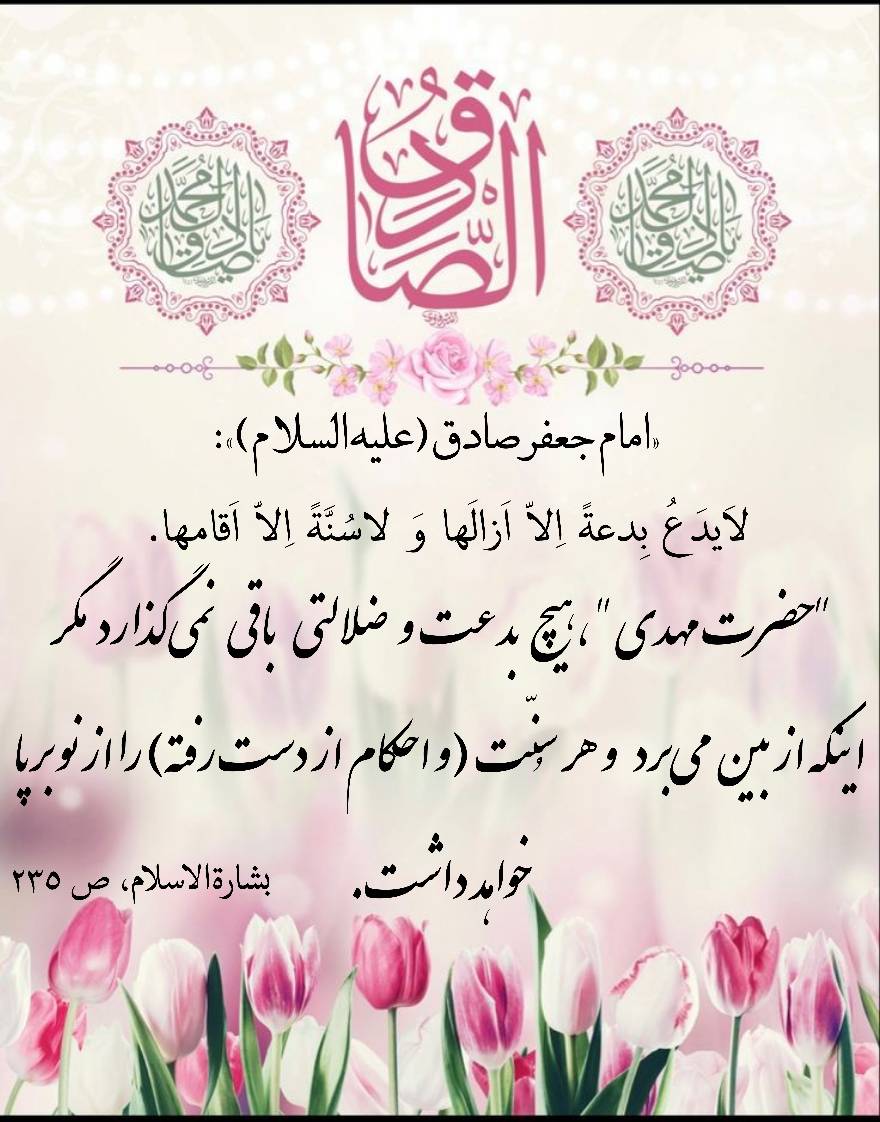 الصّادق
یا صادق آل محمد
یا صادق آل محمد
«امام جعفر صادق (علیه السلام)»:
لاَیدَعُ بِدعةً اِلاّ اَزالَها وَ لاسُنَّةً اِلاّ اَقامها.
"حضرت مهدی"، هیچ بدعت و ضلالتی باقی نمی‌گذارد مگر
اینکه از بین می‌برد و هر سنّت (و احکام از دست رفته) را از نو برپا
خواهد داشت.
بشارةالاسلام، ص ۲۳۵